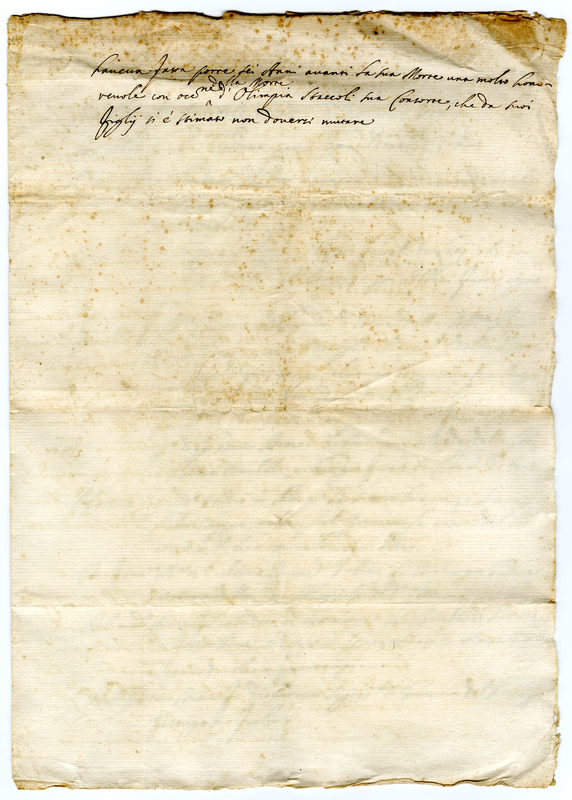 haveva fatta porre sei Anni avanti la sua Morte una molto hono-
revole con occne della Morte d'Olimpia Staccoli sua Consorte, che da suoi
figlij si è stimato non doversi mutare